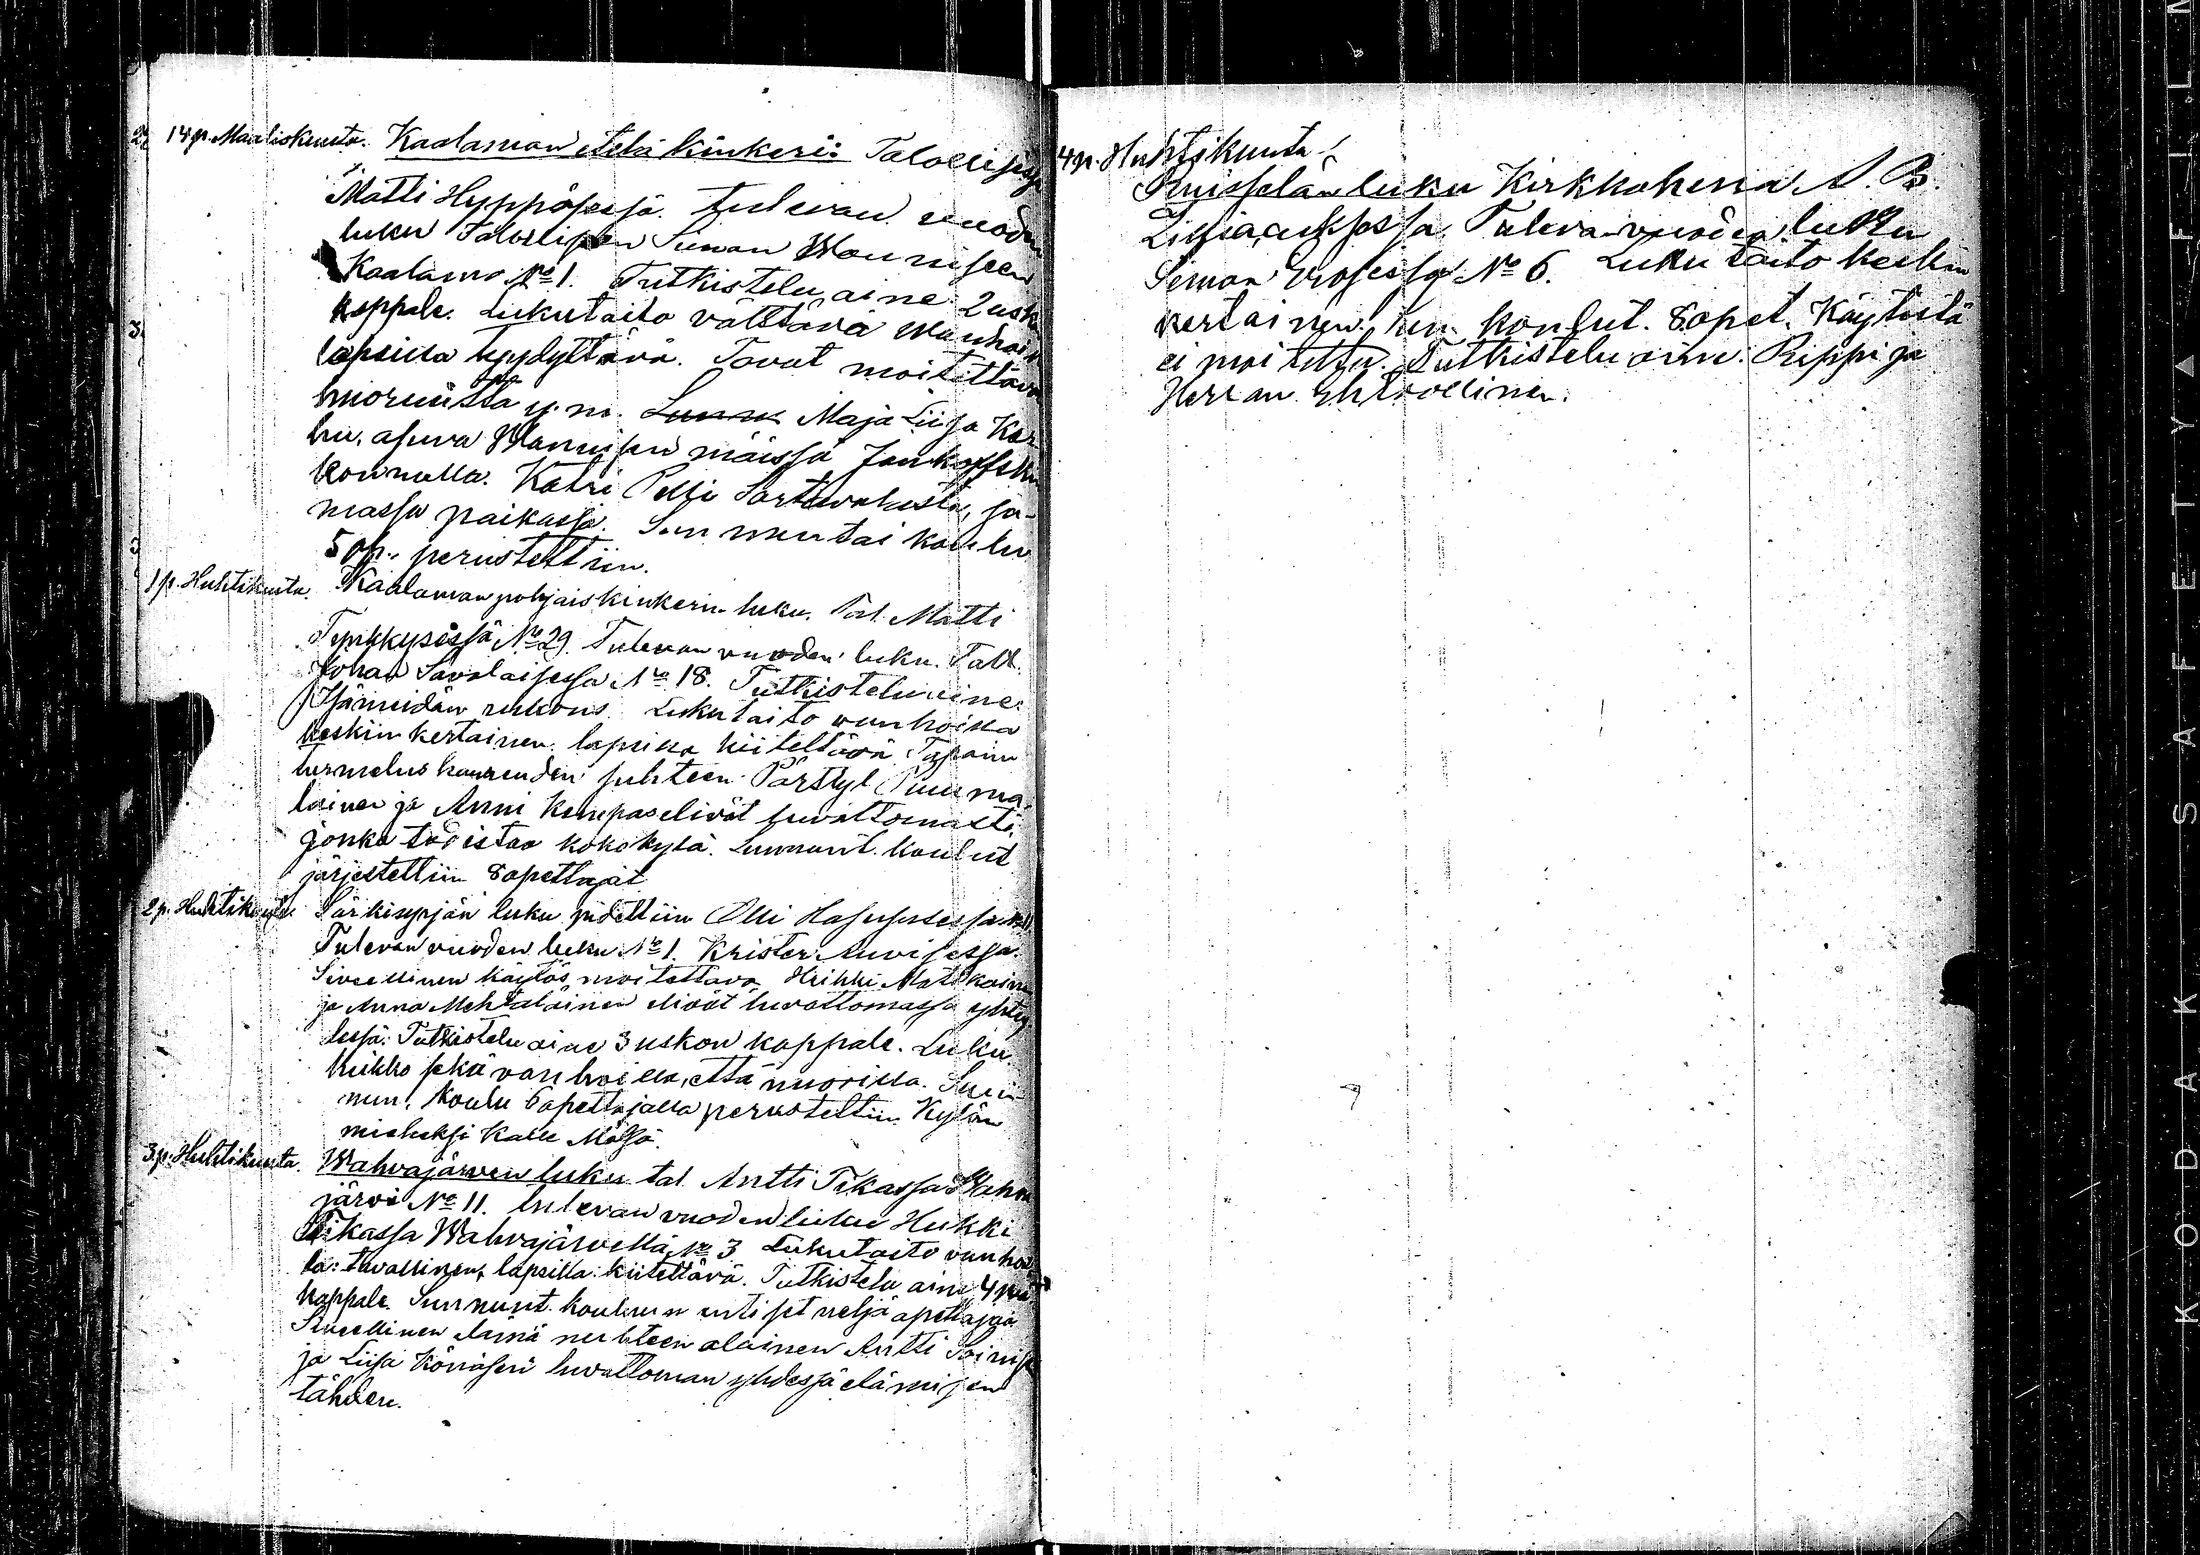 14 p. Maaliskuuta. Kaalamon etelä kinkeri: Talollisen
Matti Hyppösessä. tulevan vuoden
luku Talollisen Simon Wänniseen
Kaalamo No 1. Tutkistelu aine 2 usk
kappale. Lukutaito välttävä wanhoilla
lapsilla tyydyttävä. Tavat moitittava
huoruutta y.m. Maja Liisa Kar
hu, asuva Wännisen mäissä
konnulla. Katri Pelli Sortavalasta, sa-
massa paikassa. Sunnuntai koulu
5 op. perustettiin.
1 p. Huhtikuuta. Kaalamon pohjaiskinkerin luku. Tal. Matti
No 29. Tulevan vuoden luku. Tall.
Johan Savolaisessa No 18. Tutkistelu aine:
Isämeidän rukous. Lukutaito vanhoilla
keskinkertainen. lapsilla kiitettävä
turmelus haureuden suhteen. Pärttyl Puuma-
lainen ja Anni Kempas elivät luvattomasti,
jonka todistaa koko kylä. Sunnunt. koulut
järjestettiin 8 opettajat
2 p. Huhtikuuta. Särkisyrjän luku pidettiin Olli
Tulevan vuoden luku No 1. Krister Auvisessa.
Siveellinen käytös moitettava. Heikki Matikainen
ja Anna elivät luvattomassa yhtey
dessä. Tutkistelu aine 3 uskon kappale. Luku
heikko sekä vanhoilla, että nuorilla. Sun-
nun. Koulu 6 opettajalla perustettiin. Kylän
mieheksi Kalle Mölsä.
3 p. Huhtikuuta. Wahvajärven luku tal. Antti Tikassa Wahva
järvi No 11. tulevan vuoden luku Heikki
Tikassa Wahvajärvellä No 3 Lukutaito vanhoil
la: tavallinen, lapsilla: kiitettävä. Tutkistelu aine 4
kappale. Sunnunt. kouluun entiset neljä opettajaa.
Siveellinen elämä nuhteen alainen Antti Soinis
ja Liisa Könösen luvattoman yhdessä elämisen
tähden.
4 p. Huhtikuuta
Ruisselän luku Kirkkoherra A. B.
Tulevan vuoden luku
Simon No 6. Luku taito keskin
kertainen. Sun. koulut. 8 opet. Käytöstä
ei moitetta. Tutkistelu aine: Rippi ja
Herran Ehtoollinen.
KODAK SAFETY ▲ FILM